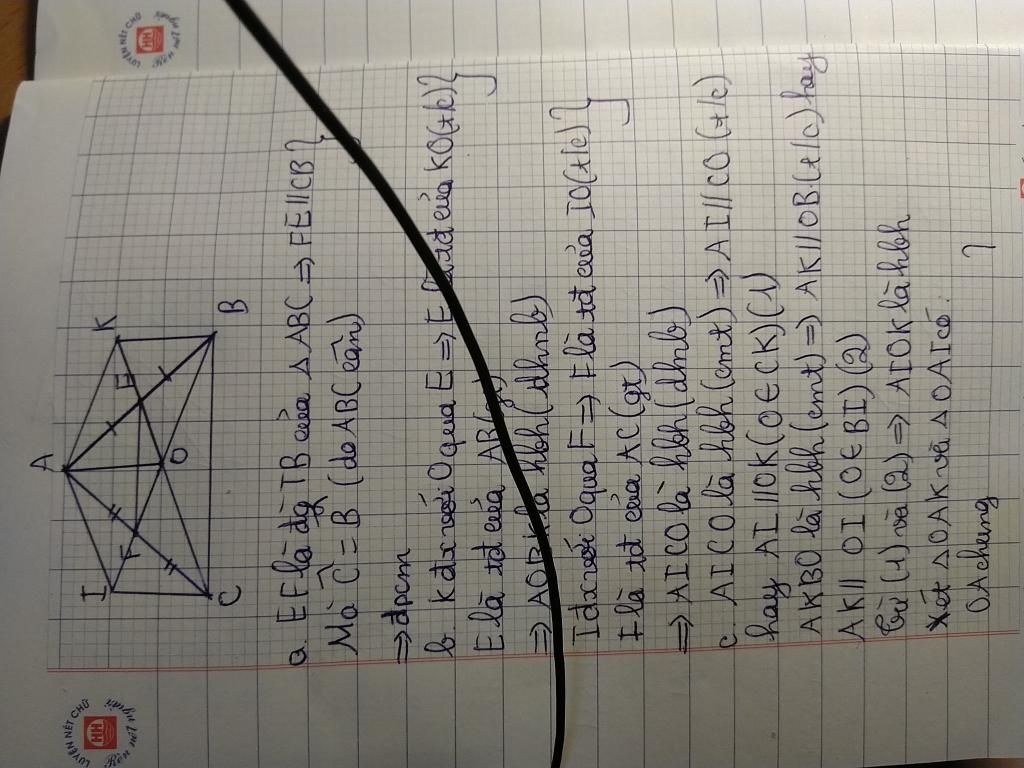 LUYỆN NẾT CHỮ
HH
Rèn nết người
LUYỆN NẾT CHỮ
HH
Rèn nết người
A
I
K
F
E
O
C
B
a. EF là đg TB của △ABC ⇒ FE // CB }
Mà Ĉ = B̂ (do ABC cân)
⇒ đpcm
b. K đx với O qua E ⇒ E là tđ của KO (t/c) }
E là tđ của AB (gt)
⇒ AOBK là hbh (dhnb)
I đx với O qua F ⇒ F là tđ của IO (t/c) }
F là tđ của AC (gt)
⇒ AICO là hbh (dhnb)
c. AICO là hbh (cmt) ⇒ AI // CO (t/c)
hay AI // OK (O ∈ CK) (1)
AKBO là hbh (cmt) ⇒ AK // OB (t/c) hay
AK // OI (O ∈ BI) (2)
Từ (1) và (2) ⇒ AIOK là hbh
Xét △OAK và △OAI có:
OA chung